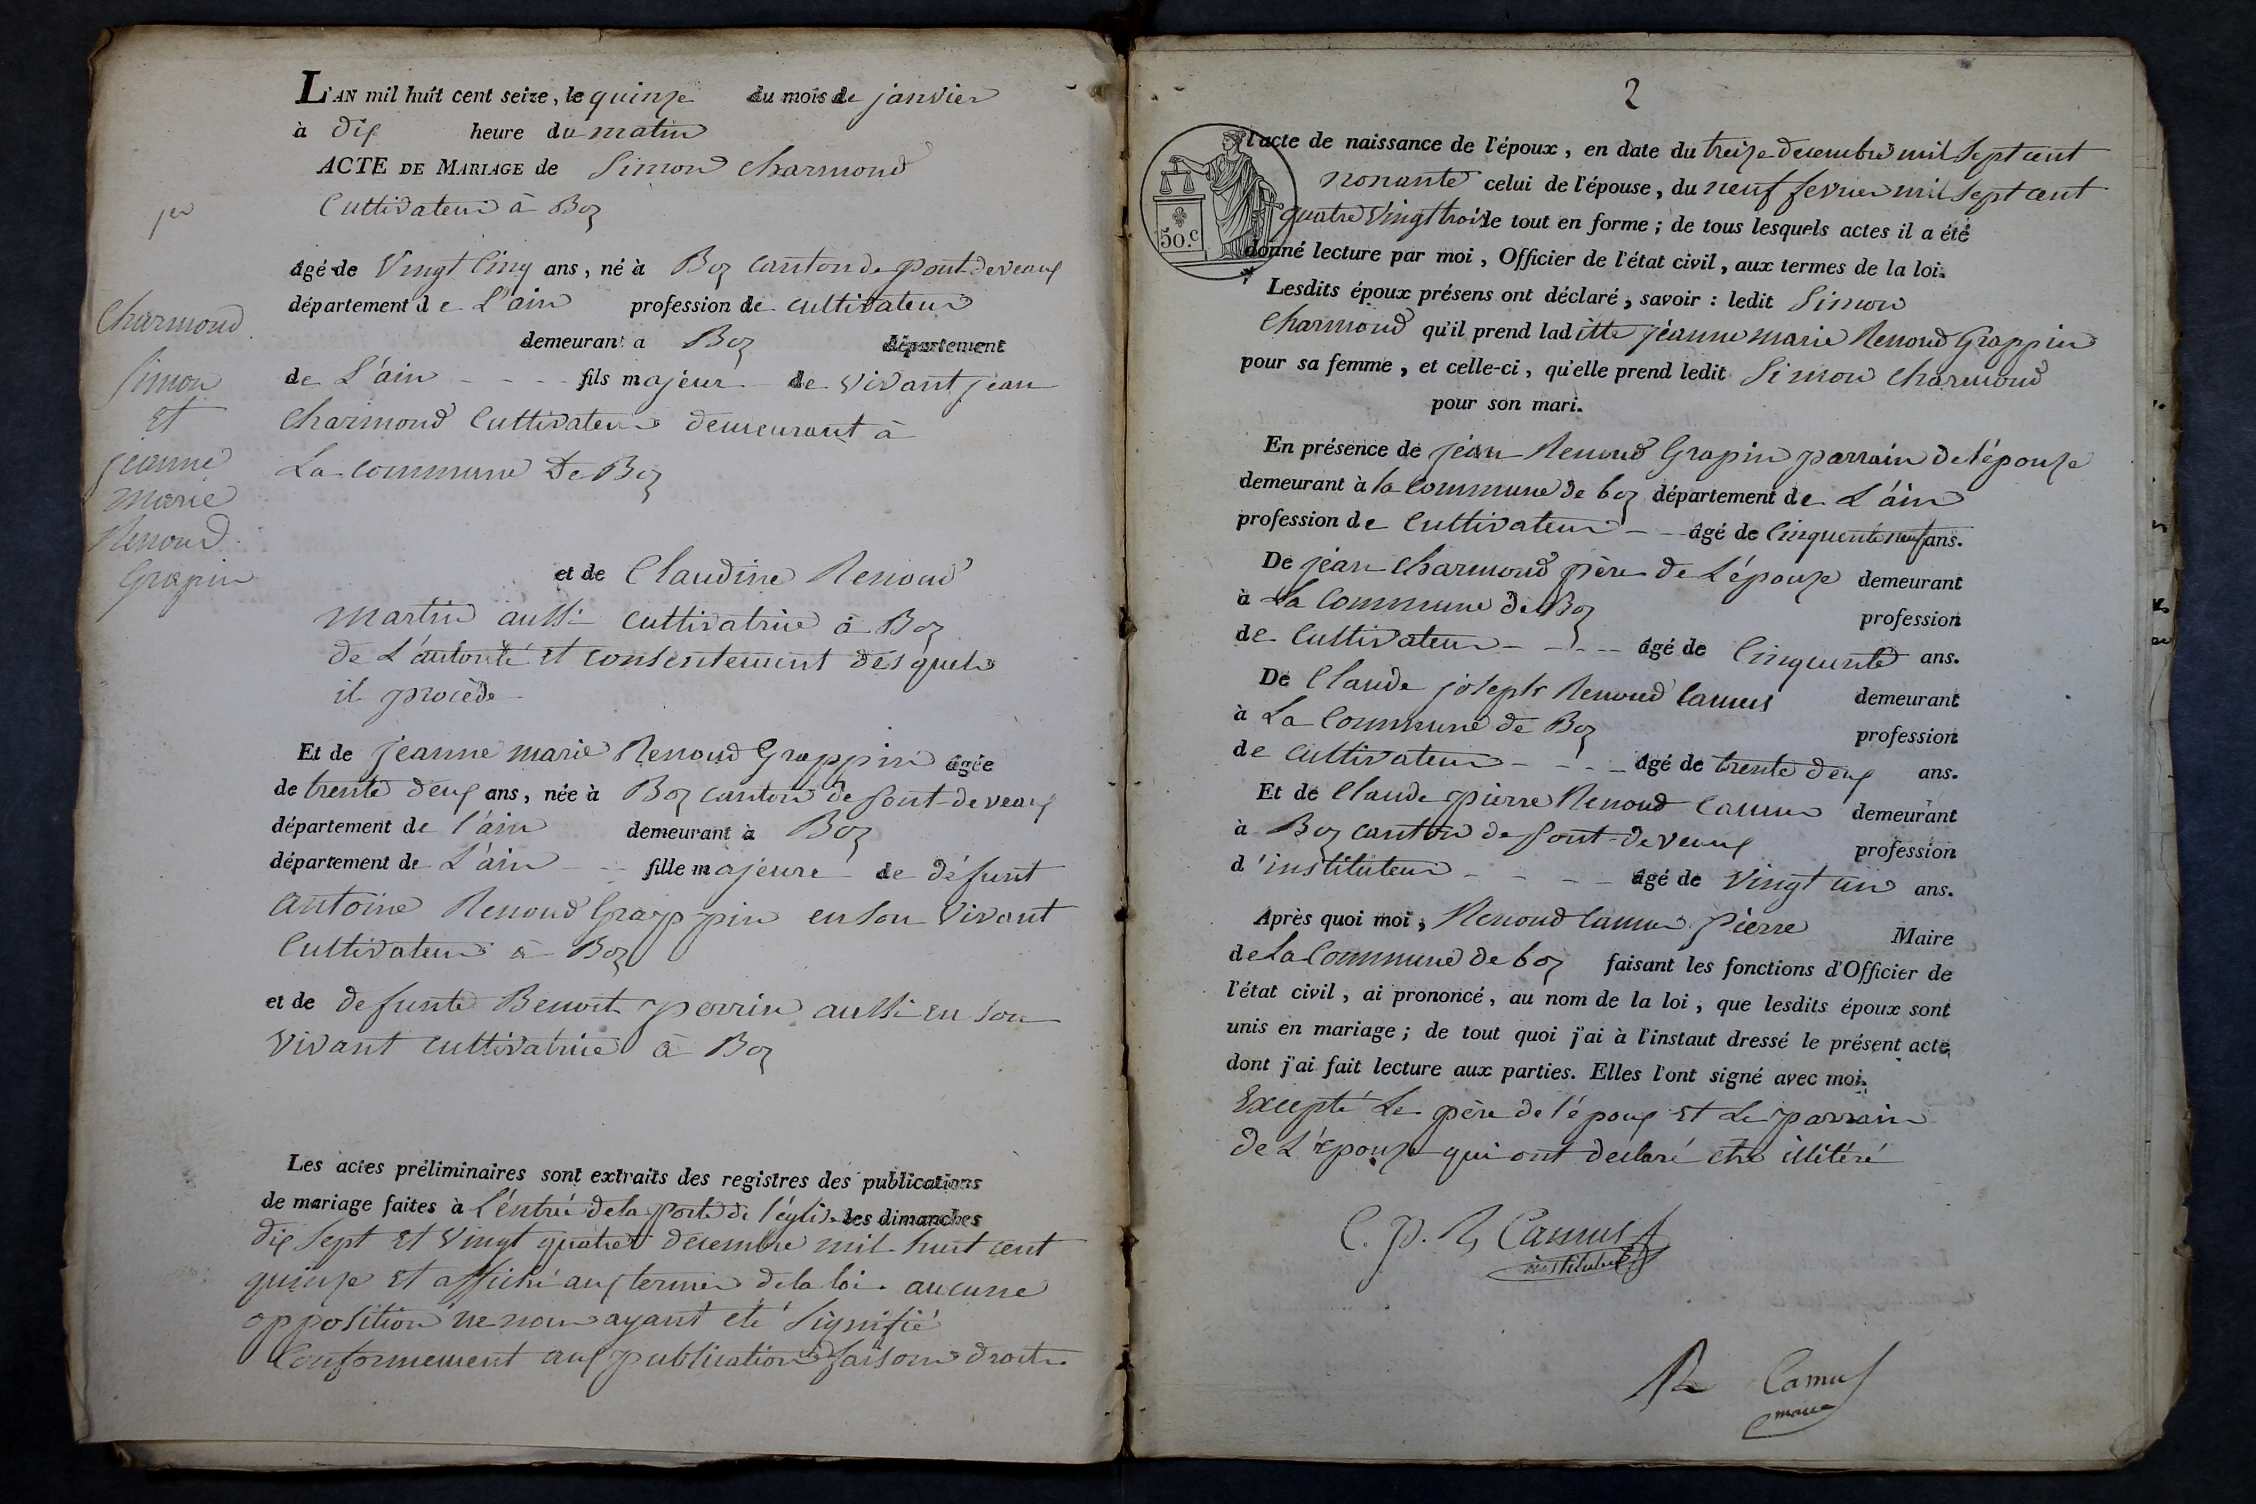 L'AN mil huit cent seize, le quinze du mois de janvier
à dix heure du matin
ACTE DE MARIAGE de Simon Charmond
Cultivateur à Boz
1er
âgé de Vingt Cinq ans, né à Boz Canton de pont-de veaux
département de L'ain profession de cultivateur
demeurant a Boz département
de L'ain - - - fils majeur de vivant jean
Charmond Cultivateur demeurant à
La commune De Boz
Charmond
Simon
Et
jeanne
marie
Renoud
Grapin
et de Claudine Renoud
martin aussi cultivatrice à Boz
de L'autorité Et consentement désquels
il procède
Et de jeanne marie Renoud Grappin âgée
de trente deux ans, née à Boz canton de pont-de veaux
département de l'ain demeurant à Boz
département de L'ain - - fille majeure de défunt
antoine Renoud Grappin en son Vivant
Cultivateur à Boz
et de defunte Benoit perrin aussi en son
Vivant cultivatrice à Boz
Les actes préliminaires sont extraits des registres des publications
de mariage faites à L'éntrée de la porte de l'église les dimanches
dix sept Et vingt quatre decembre mil huit cent
quinze Et affiché aux termes de la loi. aucune
opposition ne nous ayant été Signifié
Conformement aux publications faisons droit.
2
50.c
l'acte de naissance de l'époux, en date du treize decembre mil Sept cent
nonante celui de l'épouse, du neuf fevrier mil Sept cent
quatre Vingt trois le tout en forme; de tous lesquels actes il a été
donné lecture par moi, Officier de l'état civil, aux termes de la loi.
Lesdits époux présens ont déclaré, savoir: ledit Simon
Charmond qu'il prend laditte jéanne marie Renoud Grappin
pour sa femme, et celle-ci, qu'elle prend ledit Simon Charmond
pour son mari.
En présence de jéan Renoud Grapin parrain de l'épouze
demeurant à la Commune de boz département de L'ain
profession de Cultivateur - - âgé de Cinquente neuf ans.
De jéan Charmond père de L'épouze demeurant
à La Commune de Boz profession
de Cultivateur - - - - âgé de Cinquente ans.
De Claude joseph Renoud Camus demeurant
à La Commune de Boz profession
de Cultivateur - - - - âgé de trente deux ans.
Et de Claude pierre Renoud Camus demeurant
à Boz canton de pont-de veaux profession
d'instituteur - - - - âgé de Vingt un ans.
Après quoi moi, Renoud Camus Pierre Maire
de La Commune de boz faisant les fonctions d'Officier de
l'état civil, ai prononcé, au nom de la loi, que lesdits époux sont
unis en mariage; de tout quoi j'ai à l'instaut dressé le présent acte,
dont j'ai fait lecture aux parties. Elles l'ont signé avec moi.
Excepté Le père de l'époux Et Le parrain
de L'épouze qui ont déclaré etre illitéré
C. p. R Camus
instituteur
R Camus
maire